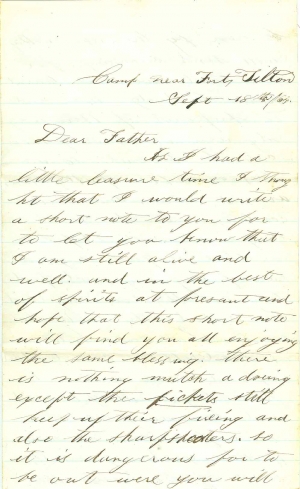 Camp near Fort Tilton
Sept 18th/64
Dear Father
As I had a
little leasure time I thoug
ht that I would write
a short note to you for
to let you know that
I am still alive and
well. and in the best
of spirits at presant and
hope that this short note
will find you all enjoying
the same blessing. There
is nothing mutch a doing
except the pickets still
keep up their fireing and
also the sharpshooters. so
it is dangerous for to
be out were you will